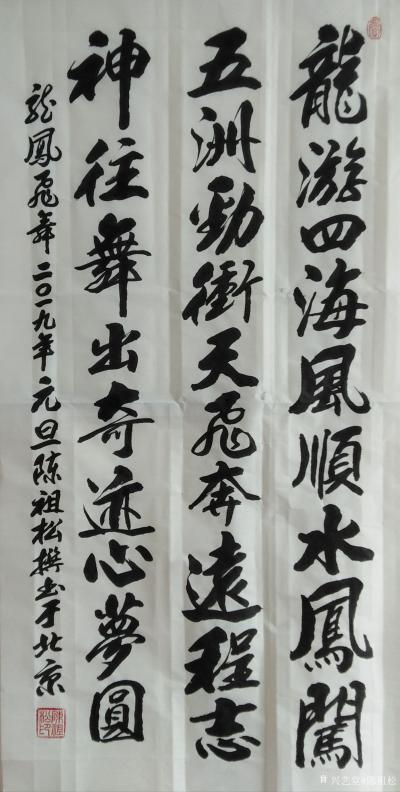 龍游四海風順水鳳闖
五洲勁衝天飛奔遠程志
神往舞出奇迹心夢圓
龙鳳飛舞二〇一九年元旦陈祖松撰书于北京
陳祖松印